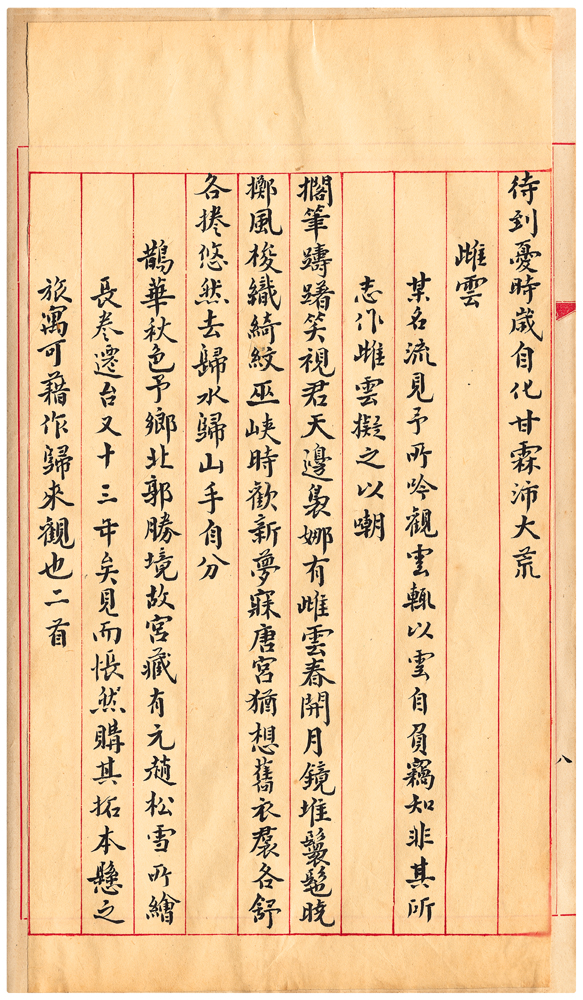 待到憂時歲自化甘霖沛大荒
雌雲
某名流見予所吟觀雲輒以雲自負竊知非其所
志作雌雲擬之以嘲
擱筆躊躇笑視君天邊裊娜有雌雲春開月鏡堆鬟髻曉
擲風梭織綺紋巫峽時歡新夢寐唐宮猶想舊衣裙各舒
各捲悠然去歸水歸山手自分
鵲華秋色予鄉北郭勝境故宮藏有元趙松雪所繪
長卷遷台又十三年矣見而悵然購其拓本懸之
旅寓可藉作歸來觀也二首
八